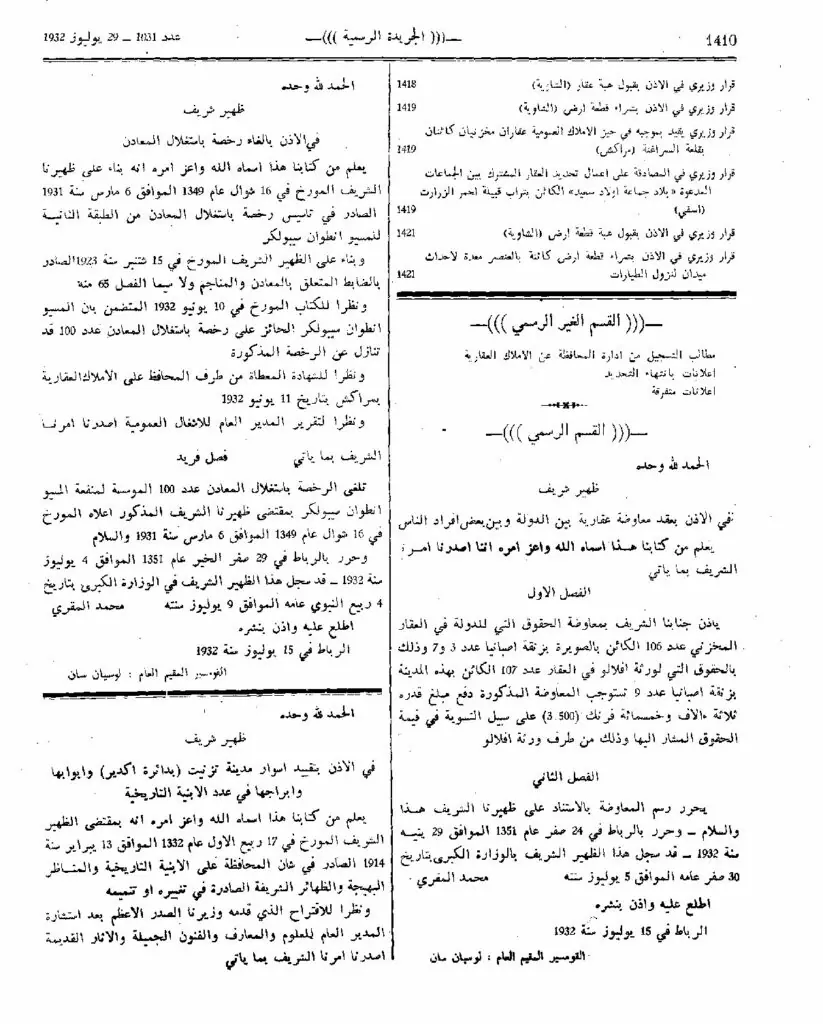 1410
—((( الجريدة الرسمية )))—
عدد 1031 — 29 يوليوز 1932
قرار وزيري في الاذن بقبول هبة عقار (الشاوية) 1418
قرار وزيري في الاذن بشراء قطعة ارض (الشاوية) 1419
قرار وزيري يفيد بموجبه في حيز الاملاك العمومية عقاران مخزنيان كائنان
بقلعة السراغنة (مراكش) 1419
قرار وزيري في المصادقة على اعمال تحديد العقار المشترك بين الجماعات
المدعوة «بلاد جماعة اولاد سعيد» الكائن بتراب قبيلة احمر الزرارت
(اسفي) 1419
قرار وزيري في الاذن بقبول هبة قطعة ارض (الشاوية) 1421
قرار وزيري في الاذن بشراء قطعة ارض كائنة بالعنصر معدة لاحداث
ميدان لنزول الطيارات 1421
—((( القسم الغير الرسمي )))—
مطالب التسجيل من ادارة المحافظة عن الاملاك العقارية
اعلانات بانتهاء التحديد
اعلانات متفرقة
—((( القسم الرسمي )))—
الحمد لله وحده
ظهير شريف
في الاذن بعقد معاوضة عقارية بين الدولة وبين بعض افراد الناس
يعلم من كتابنا هذا اسماه الله واعز امره اننا اصدرنا امره
الشريف بما ياتي
الفصل الاول
ياذن جنابنا الشريف بمعاوضة الحقوق التي للدولة في العقار
المخزني عدد 106 الكائن بالصويرة بزنقة اصبانيا عدد 3 و7 وذلك
بالحقوق التي لورثة افلالو في العقار عدد 107 الكائن بهذه المدينة
بزنقة اصبانيا عدد 9 تستوجب المعاوضة المذكورة دفع مبلغ قدره
ثلاثة ءالاف وخمسمائة فرنك (3.500) على سبيل التسوية في قيمة
الحقوق المشار اليها وذلك من طرف ورثة افلالو
الفصل الثاني
يحرر رسم المعاوضة بالاستناد على ظهيرنا الشريف هذا
والسلام – وحرر بالرباط في 24 صفر عام 1351 الموافق 29 ينيه
سنة 1932 – قد سجل هذا الظهير الشريف بالوزارة الكبرى بتاريخ
30 صفر عامه الموافق 5 يوليوز سنته محمد المقري
اطلع عليه واذن بنشره
الرباط في 15 يوليوز سنة 1932
القوسير المقيم العام : لوسيان سان
الحمد لله وحده
ظهير شريف
في الاذن بالغاء رخصة باستغلال المعادن
يعلم من كتابنا هذا اسماه الله واعز امره انه بناء على ظهيرنا
الشريف المورخ في 16 شوال عام 1349 الموافق 6 مارس سنة 1931
الصادر في تاسيس رخصة باستغلال المعادن من الطبقة الثانية
للمسيو انطوان سيولكر
وبناء على الظهير الشريف المورخ في 15 شتنبر سنة 1923 الصادر
بالضابط المتعلق بالمعادن والمناجم ولا سيما الفصل 65 منه
ونظرا للكتاب المورخ في 10 يونيو 1932 المتضمن بان المسيو
انطوان سيولكر الحائز على رخصة باستغلال المعادن عدد 100 قد
تنازل عن الرخصة المذكورة
ونظرا للشهادة المعطاة من طرف المحافظ على الاملاك العقارية
بمراكش بتاريخ 11 يونيو 1932
ونظرا لتقرير المدير العام للاشغال العمومية اصدرنا امرنا
الشريف بما ياتي فصل فريد
تلغى الرخصة باستغلال المعادن عدد 100 الموسسة لمنفعة المسيو
انطوان سيولكر بمقتضى ظهيرنا الشريف المذكور اعلاه المورخ
في 16 شوال عام 1349 الموافق 6 مارس سنة 1931 والسلام
وحرر بالرباط في 29 صفر الخير عام 1351 الموافق 4 يوليوز
سنة 1932 – قد سجل هذا الظهير الشريف في الوزارة الكبرى بتاريخ
4 ربيع النبوي عامه الموافق 9 يوليوز سنته محمد المقري
اطلع عليه واذن بنشره
الرباط في 15 يوليوز سنة 1932
القوسير المقيم العام : لوسيان سان
الحمد لله وحده
ظهير شريف
في الاذن بتقييد اسوار مدينة تزنيت (بدائرة اكدير) وابوابها
وابراجها في عدد الابنية التاريخية
يعلم من كتابنا هذا اسماه الله واعز امره انه بمقتضى الظهير
الشريف المورخ في 17 ربيع الاول عام 1332 الموافق 13 يبراير سنة
1914 الصادر في شان المحافظة على الابنية التاريخية والمناظر
البهيجة والظهائر الشريفة الصادرة في تغييره او تتميمه
ونظرا للاقتراح الذي قدمه وزيرنا الصدر الاعظم بعد استشارة
المدير العام للعلوم والمعارف والفنون الجميلة والاثار القديمة
اصدرنا امرنا الشريف بما ياتي